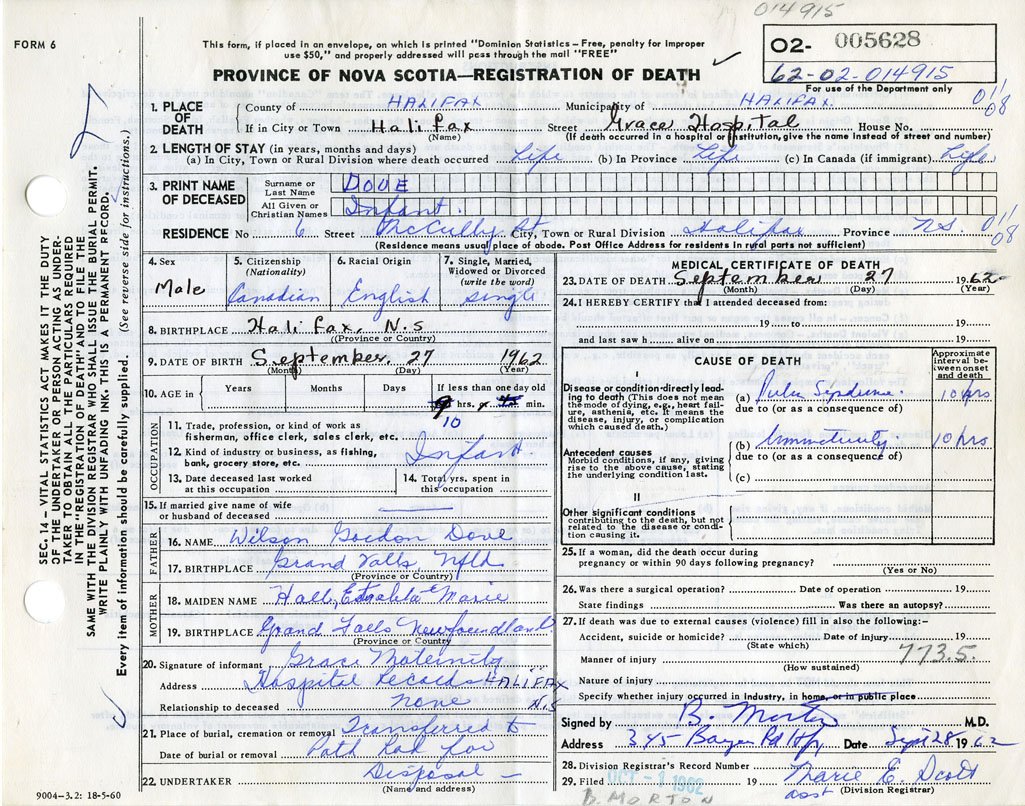 014915
FORM 6
This form, if placed in an envelope, on which is printed "Dominion Statistics – Free, penalty for improper
use $50," and properly addressed will pass through the mail "FREE"
O2- 005628
62-02-014915
For use of the Department only
PROVINCE OF NOVA SCOTIA—REGISTRATION OF DEATH
1. PLACE OF DEATH
County of HALIFAX Municipality of HALIFAX.
If in City or Town Halifax Street Grace Hospital House No.
(Name) (If death occurred in a hospital or institution, give the name instead of street and number)
2. LENGTH OF STAY (in years, months and days)
(a) In City, Town or Rural Division where death occurred Life (b) In Province Life (c) In Canada (if immigrant) Life
3. PRINT NAME OF DECEASED
Surname or Last Name DOVE
All Given or Christian Names Infant.
RESIDENCE No 6 Street McCully St City, Town or Rural Division Halifax Province N.S
(Residence means usual place of abode. Post Office Address for residents in rural parts not sufficient)
4. Sex Male
5. Citizenship (Nationality) Canadian
6. Racial Origin English
7. Single, Married, Widowed or Divorced (write the word) Single
8. BIRTHPLACE Halifax, N.S
(Province or Country)
9. DATE OF BIRTH September 27 1962
(Month) (Day) (Year)
10. AGE in Years Months Days If less than one day old
hrs. or min.
10
OCCUPATION
11. Trade, profession, or kind of work as
fisherman, office clerk, sales clerk, etc.
12. Kind of industry or business, as fishing,
bank, grocery store, etc. Infant
13. Date deceased last worked
at this occupation
14. Total yrs. spent in
this occupation
15. If married give name of wife
or husband of deceased
FATHER
16. NAME Wilson Gordon Dove
17. BIRTHPLACE Grand Falls, Nfld
(Province or Country)
MOTHER
18. MAIDEN NAME Hall, Marie
19. BIRTHPLACE Grand Falls Newfoundland
(Province or Country)
20. Signature of informant Grace Maternity
Address Hospital Records HALIFAX
Relationship to deceased none N.S
21. Place of burial, cremation or removal Transferred to
Date of burial or removal Path for
22. UNDERTAKER Disposal
(Name and address)
9004–3.2: 18-5-60
MEDICAL CERTIFICATE OF DEATH
23. DATE OF DEATH September 27 1962
(Month) (Day) (Year)
24. I HEREBY CERTIFY that I attended deceased from:
19 to 19
and last saw h alive on 19
CAUSE OF DEATH
Approximate interval between onset and death
I
Disease or condition directly leading to death (This does not mean
the mode of dying, e.g., heart failure, asthenia, etc. It means the
disease, injury, or complication which caused death.)
(a) Pulm Syndrome 10 hrs
due to (or as a consequence of)
Antecedent causes
Morbid conditions, if any, giving
rise to the above cause, stating
the underlying condition last.
(b) Immaturity. 10 hrs
due to (or as a consequence of)
(c)
II
Other significant conditions
contributing to the death, but not
related to the disease or condition
causing it.
25. If a woman, did the death occur during
pregnancy or within 90 days following pregnancy?
(Yes or No)
26. Was there a surgical operation? Date of operation 19
State findings Was there an autopsy?
27. If death was due to external causes (violence) fill in also the following:–
Accident, suicide or homicide? Date of injury 19
(State which)
Manner of injury 773.5.
(How sustained)
Nature of injury
Specify whether injury occurred in Industry, in home, or in public place
Signed by B. Morton M.D.
Address 345 Rd Hfx Date Sept 28 1962
28. Division Registrar's Record Number
29. Filed OCT - 1 1962 19 Marie E. Scott
asst (Division Registrar)
B. MORTON
011
08
011
08
SEC. 14 – VITAL STATISTICS ACT MAKES IT THE DUTY
OF THE UNDERTAKER OR PERSON ACTING AS UNDER-
TAKER TO OBTAIN ALL THE PARTICULARS REQUIRED
IN THE "REGISTRATION OF DEATH" AND TO FILE THE
SAME WITH THE DIVISION REGISTRAR WHO SHALL ISSUE THE BURIAL PERMIT.
WRITE PLAINLY WITH UNFADING INK. THIS IS A PERMANENT RECORD.
Every item of information should be carefully supplied. (See reverse side for instructions.)